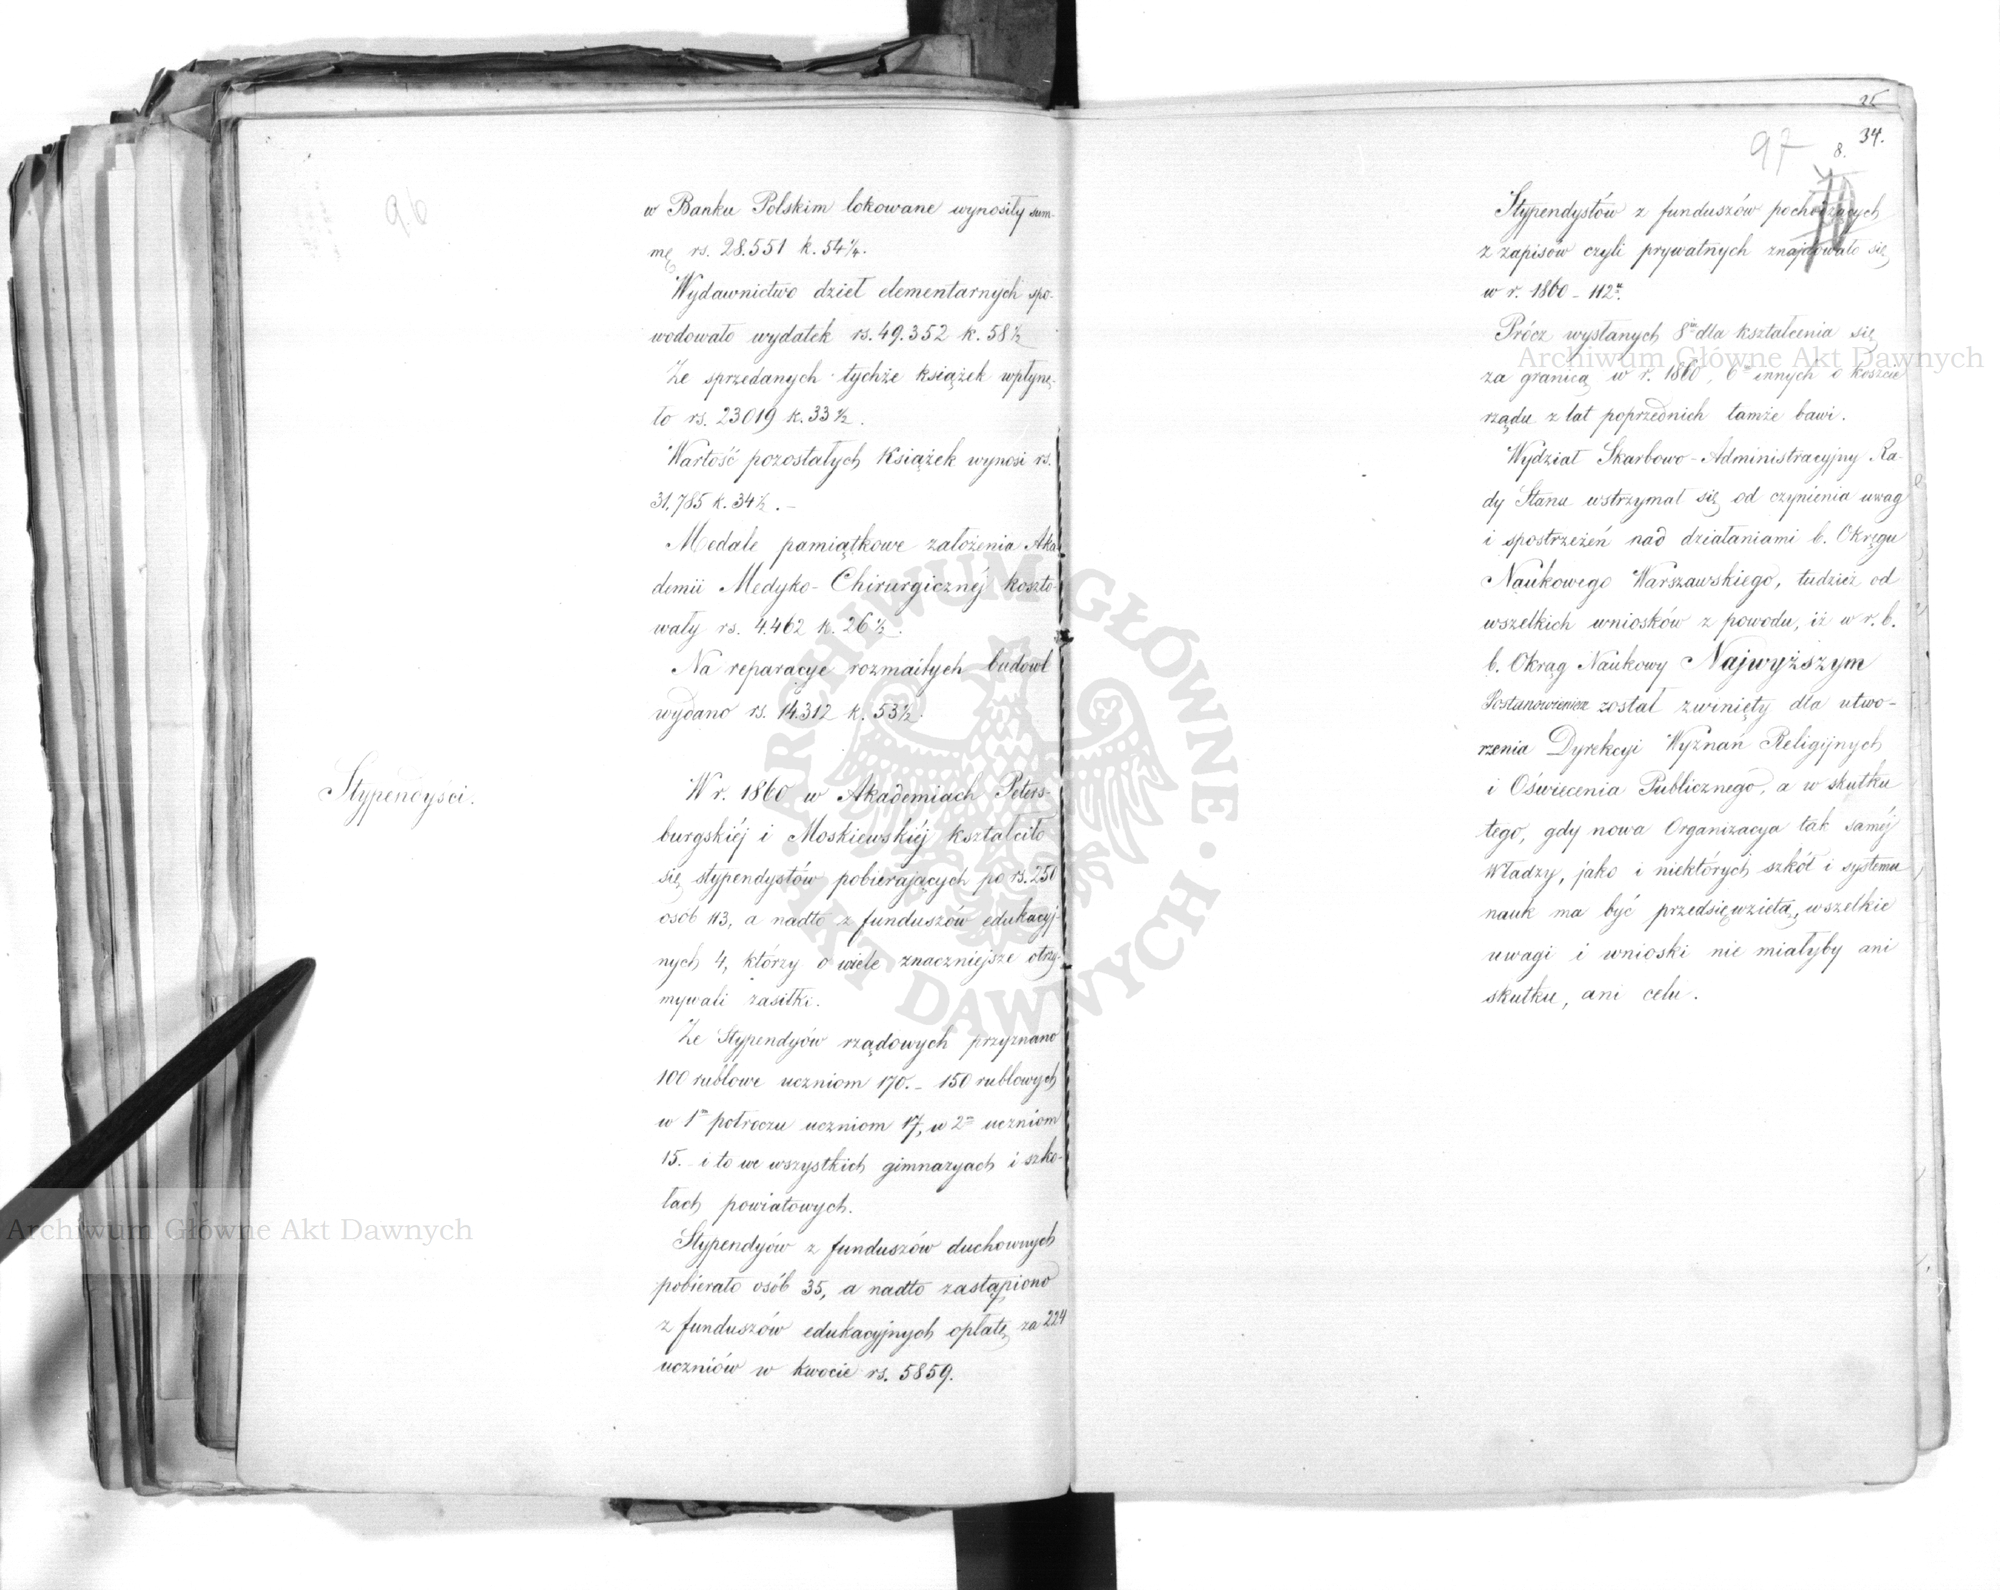 96
w Banku Polskim lokowane wynosiły sum-
mę rs. 28.551 k. 54¼.
Wydawnictwo dzieł elementarnych spo-
wodowało wydatek rs. 49.352 k. 58½
Ze sprzedanych tychże książek wpłynę-
ło rs. 23019 k. 33½.
Wartość pozostałych Książek wynosi rs.
31,785 k. 34½. –
Medale pamiątkowe założenia Aka-
demii Medyko-Chirurgicznéj koszto-
wały rs. 4.462 k. 26½.
Na reparacye rozmaitych budowl
wydano rs. 14.312 k. 53½.
Stypendyści.
W r. 1860 w Akademiach Peters-
burgskiéj i Moskiewskiéj kształciło
się stypendystów pobierających po rs. 250
osób 113, a nadto z funduszów edukacyj-
nych 4, którzy o wiele znaczniejsze otrzy-
mywali zasiłki.
Ze Stypendyów rządowych przyznano
100 rublowe uczniom 170. – 150 rublowych
w 1m półroczu uczniom 17, w 2m uczniom
15. – i to we wszystkich gimnazyach i szko-
łach powiatowych.
Stypendyów z funduszów duchownych
pobierało osób 35, a nadto zastąpiono
z funduszów edukacyjnych opłatę za 224
uczniów w kwocie rs. 5859.
34.
97
8.
Stypendystów z funduszów pochodzących
z zapisów czyli prywatnych znajdowało się
w r. 1860 – 112u.
Prócz wysłanych 8iu dla kształcenia się
za granicą w r. 1860, 6u innych o koszcie
rządu z lat poprzednich tamże bawi.
Wydział Skarbowo-Administracyjny Ra-
dy Stanu wstrzymał się od czynienia uwag
i spostrzeżeń nad działaniami b. Okręgu
Naukowego Warszawskiego, tudzież od
wszelkich wniosków z powodu, iż w r. b.
b. Okrąg Naukowy Najwyższym
Postanowieniem został zwinięty dla utwo-
rzenia Dyrekcyi Wyznań Religijnych
i Oświecenia Publicznego, a w skutku
tego, gdy nowa Organizacya tak saméj
Władzy, jako i niektórych szkół i systemu
nauk ma być przedsięwzieta, wszelkie
uwagi i wnioski nie miałyby ani
skutku, ani celu.
Archiwum Główne Akt Dawnych
Archiwum Główne Akt Dawnych
ARCHIWUM GŁÓWNE · AKT DAWNYCH ·